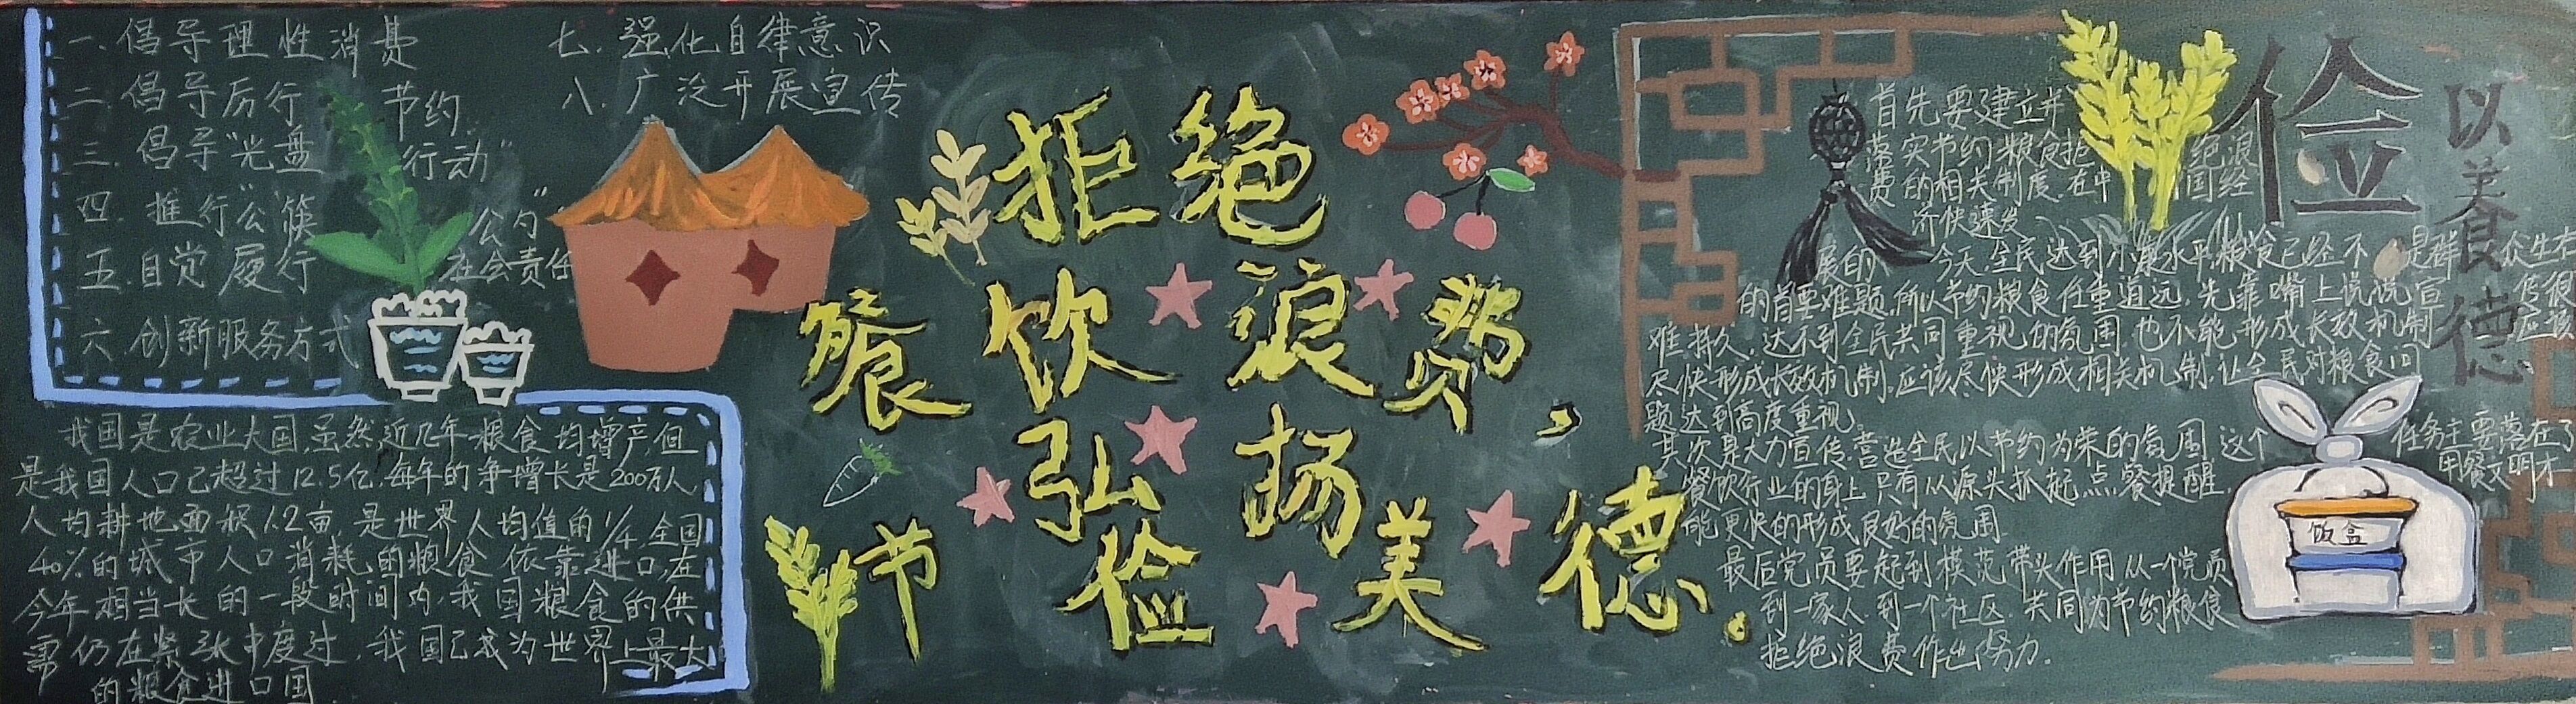 一、倡导理性消费
二、倡导厉行节约
三、倡导“光盘行动”
四、推行“公筷公勺”
五、自觉履行社会责任
六、创新服务方式
七、强化自律意识
八、广泛开展宣传
我国是农业大国,虽然近几年粮食均增产,但
是我国人口已超过12.5亿,每年的净增长是200万人,
人均耕地面积1.2亩,是世界人均值的1/4,全国
40%的城市人口消耗的粮食依靠进口,在
今年相当长的一段时间内,我国粮食的供
需仍在紧张中度过,我国已成为世界上最大
的粮食进口国
拒绝
餐饮浪费,
弘扬
节俭美德.
俭以养德
首先要建立并
落实节约粮食拒绝浪
费的相关制度.在中国经
济快速发
展的今天,全民达到小康水平,粮食已经不是群众生存
的首要难题,所以节约粮食任重道远,先靠嘴上说说宣传很
难持久,达不到全民共同重视的氛围,也不能形成长效机制,应该
尽快形成长效机制,应该尽快形成相关机制,让全民对粮食问
题达到高度重视。
其次是大力宣传,营造全民以节约为荣的氛围,这个任务主要落在了
餐饮行业的身上,只有从源头抓起,点餐提醒,用餐文明才
能更快的形成良好的氛围.
最后党员要起到模范带头作用从一个党员
到一家人.到一个社区.共同为节约粮食
拒绝浪费作出努力.
饭盒